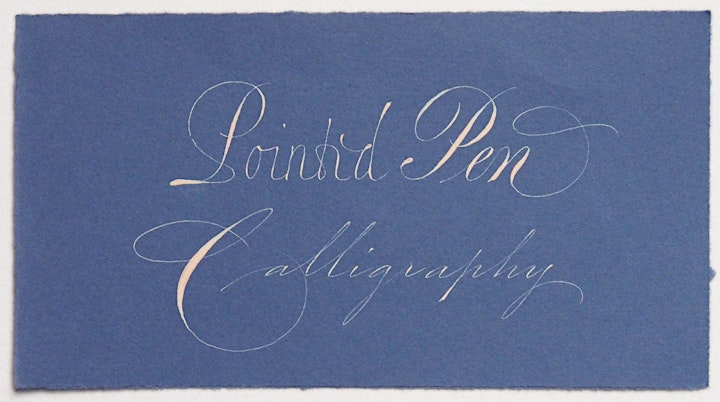 Pointed Pen
Calligraphy